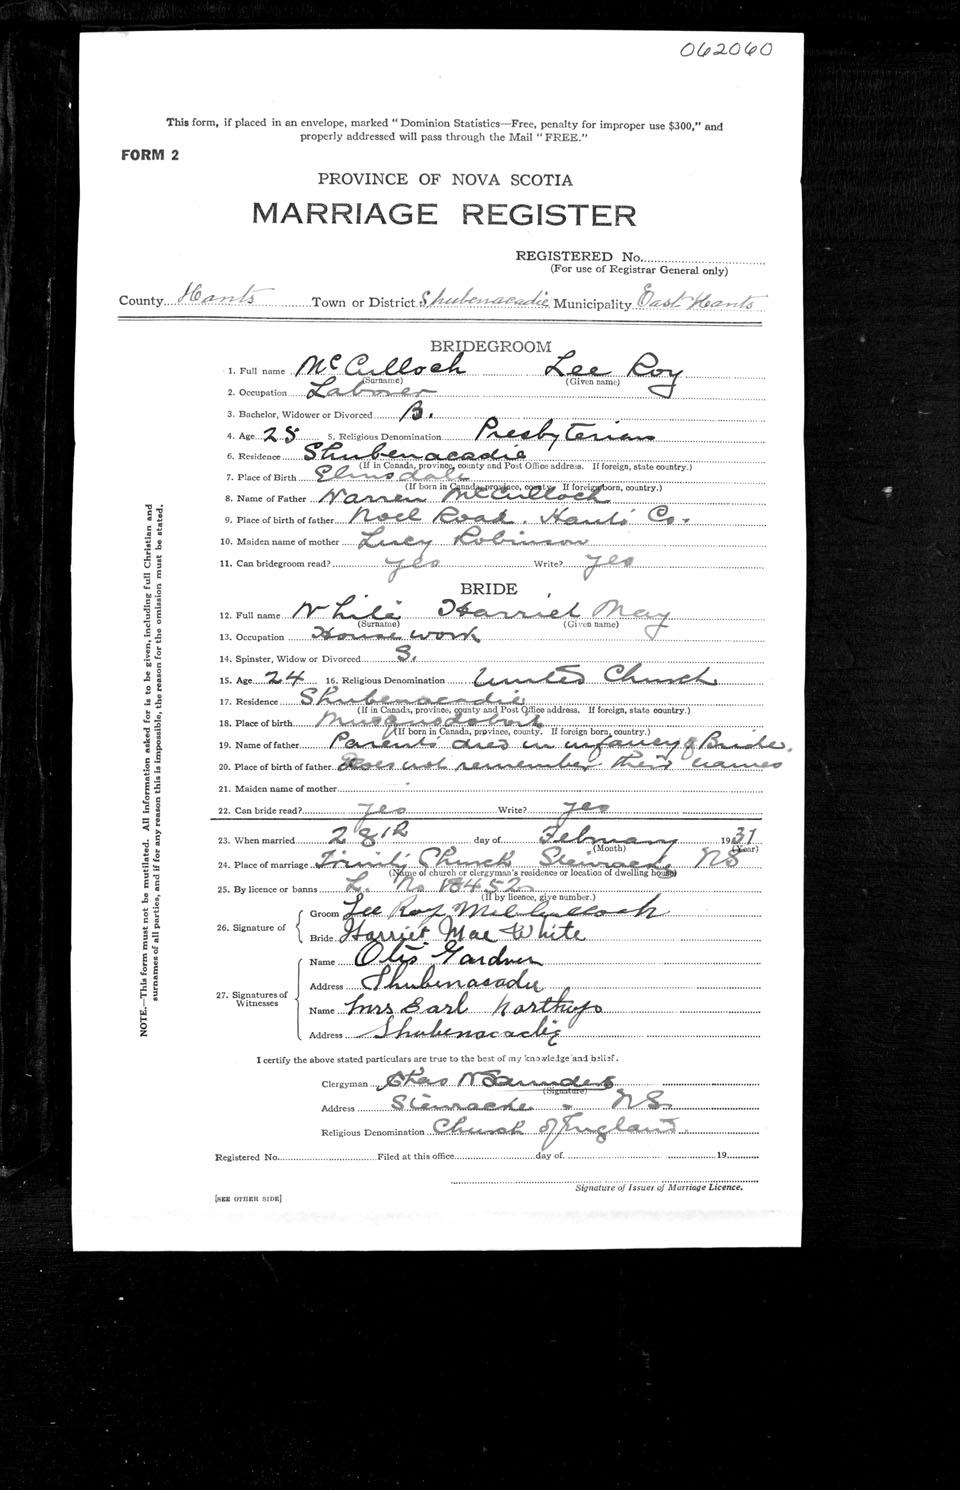 062060
This form, if placed in an envelope, marked "Dominion Statistics—Free, penalty for improper use $300," and
properly addressed will pass through the Mail "FREE."
FORM 2
PROVINCE OF NOVA SCOTIA
MARRIAGE REGISTER
REGISTERED No.
(For use of Registrar General only)
County Hants Town or District Shubenacadie Municipality East Hants
BRIDEGROOM
1. Full name McCulloch Lee Roy
(Surname) (Given name)
2. Occupation Laborer
3. Bachelor, Widower or Divorced B.
4. Age 25 5. Religious Denomination Presbyterian
6. Residence Shubenacadie
(If in Canada, province, county and Post Office address. If foreign, state country.)
7. Place of Birth Elmsdale
(If born in Canada, province, county. If foreign born, country.)
8. Name of Father Warren McCulloch
9. Place of birth of father Noel Road, Hants Co.
10. Maiden name of mother Lucy Robinson
11. Can bridegroom read? yes Write? yes
BRIDE
12. Full name White Harriet May
(Surname) (Given name)
13. Occupation House work
14. Spinster, Widow or Divorced S.
15. Age 24 16. Religious Denomination United Church
17. Residence Shubenacadie
(If in Canada, province, county and Post Office address. If foreign, state country.)
18. Place of birth Musquodoboit
(If born in Canada, province, county. If foreign born, country.)
19. Name of father Parents died in infancy of Bride.
20. Place of birth of father Does not remember their names
21. Maiden name of mother
22. Can bride read? yes Write? yes
23. When married 28th day of February 1931
(Month) (Year)
24. Place of marriage Trinity Church Stewiacke NS
(Name of church or clergyman's residence or location of dwelling house)
25. By licence or banns L. No 18452
(If by licence, give number.)
26. Signature of Groom Lee Roy McCullock
Bride Harriet Mae White
27. Signatures of Witnesses Name Otis Gardner
Address Shubenacadie
Name Mrs Earl Northup
Address Shubenacadie
I certify the above stated particulars are true to the best of my knowledge and belief.
Clergyman Chas W Saunders
(Signature)
Address Stewiacke - NS.
Religious Denomination Church of England
Registered No. Filed at this office day of 19
Signature of Issuer of Marriage Licence.
[SEE OTHER SIDE]
NOTE.—This form must not be mutilated. All information asked for is to be given, including full Christian and
surnames of all parties, and if for any reason this is impossible, the reason for the omission must be stated.